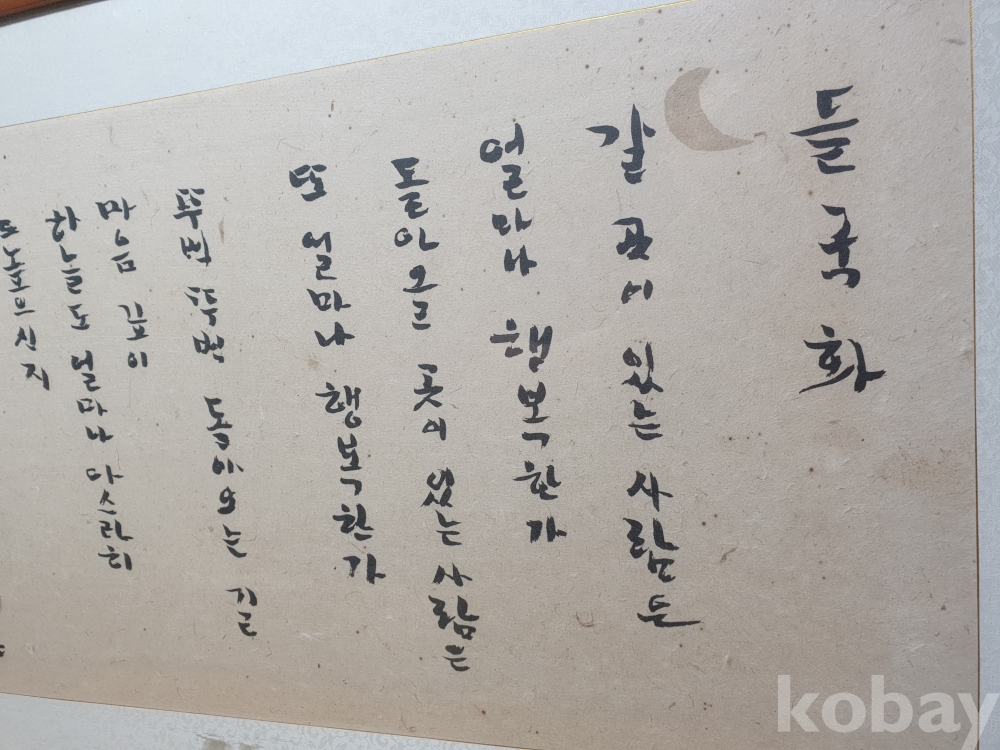 들국화
갈 곳이 있는 사람은
얼마나 행복한가
돌아올 곳이 있는 사람은
또 얼마나 행복한가
뚜벅 뚜벅 돌아오는 길
마음 깊이
하늘도 얼마나 아스라히
높으신지
kobay